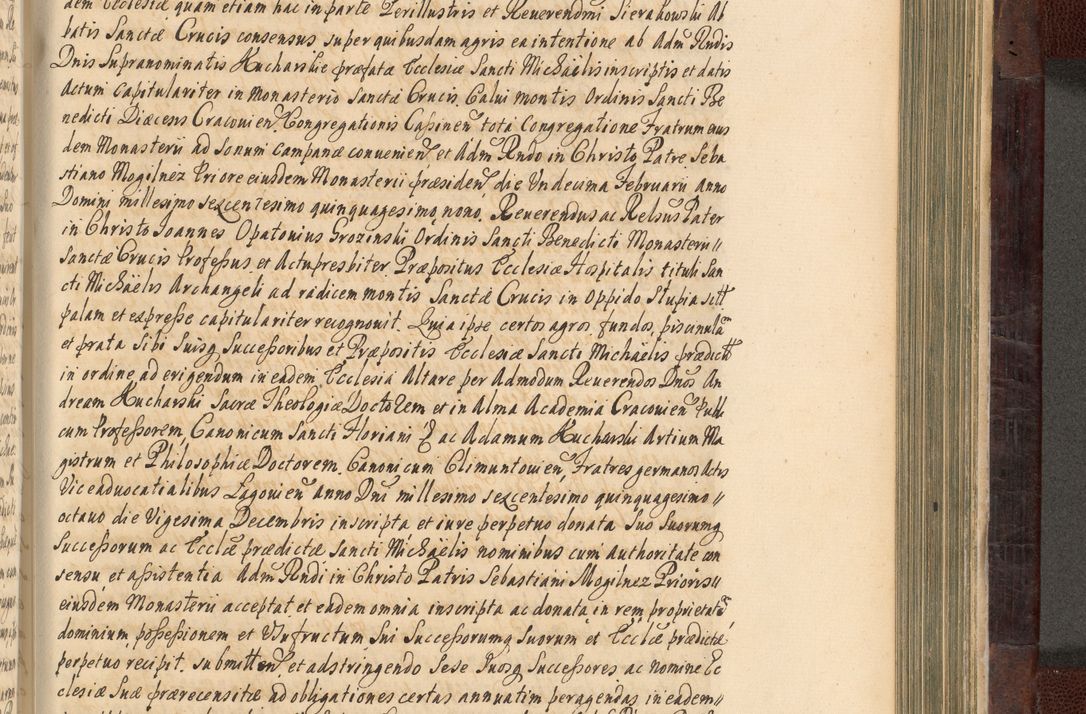 dem Ecclesiæ quam etiam hac in parte Perillustris et Reuerendmi Sierakowski Ab
batis Sanctæ Crucis consensus super quibusdam agris ea intentione ab Adm Rndis
Dnis Supranominatis Kucharskie præfatæ Ecclesiæ Sancti Michaëlis inscriptis et datis
Actum capitulariter in Monasterio Sanctæ Crucis Calui montis Ordinis Sancti Be
nedicti Diæcesis Cracouien Congregationis Cassinen tota Congregatione Fratrum eius
dem Monasterii ad sonum campanæ conuenien et Adm Rndo in Christo Patre Seba
stiano Mogilnez Priore eiusdem Monasterii præsiden die Undecima Februarii Anno
Domini millesimo sexcentesimo quinquagesimo nono. Reuerendus ac Relsus Pater
in Christo Ioannes Opatouius Grozinski Ordinis Sancti Benedicti Monasterii
Sanctæ Crucis Professus et Actu presbiter Præpositus Ecclesiæ Hospitalis tituli San
cti Michaëlis Archangeli ad radicem montis Sanctæ Crucis in Oppido Stupia sitt
palam et expresse capitulariter recognouit. Quia ipse certos agros, fundos, piscinulam
et prata Sibi Suisq Successoribus et Præpositis Ecclesiæ Sancti Michaelis prædictt
in ordine ad erigendum in eadem Ecclesia Altare per Admodum Reuerendos Dnos An
dream Kucharski Sacræ Theologiæ Doctorem et in Alma Academia Cracouien Publi
cum Professorem, Canonicum Sancti Floriani ac Adamum Kucharski Artium Ma
gistrum et Philosophiæ Doctorem. Canonicum Climuntouien, Fratres germanos Actis
Viceaduocatialibus Lagouien Anno Dni millesimo sexcentesimo quinquagesimo
octauo die Vigesima Decembris inscripta et iure perpetuo donata Suo Suorumq
Successorum ac Eccliæ prædictæ Sancti Michaëlis nominibus cum Authoritate con
sensu et assistentia Adm Rndi in Christo Patris Sebastiani Mogilnez Prioris
eiusdem Monasterii acceptat et eadem omnia inscripta ac donata in rem, proprietatem
dominium possessionem et Vsufructum Sui Successorumq Suorum et Eccliæ prædictæ
perpetuo recipit, submitten et adstringendo Sese Suosq Successores ac nomine Ec
clesiæ Suæ prærecensitæ ad obligationes certas annuatim peragendas, in eadem